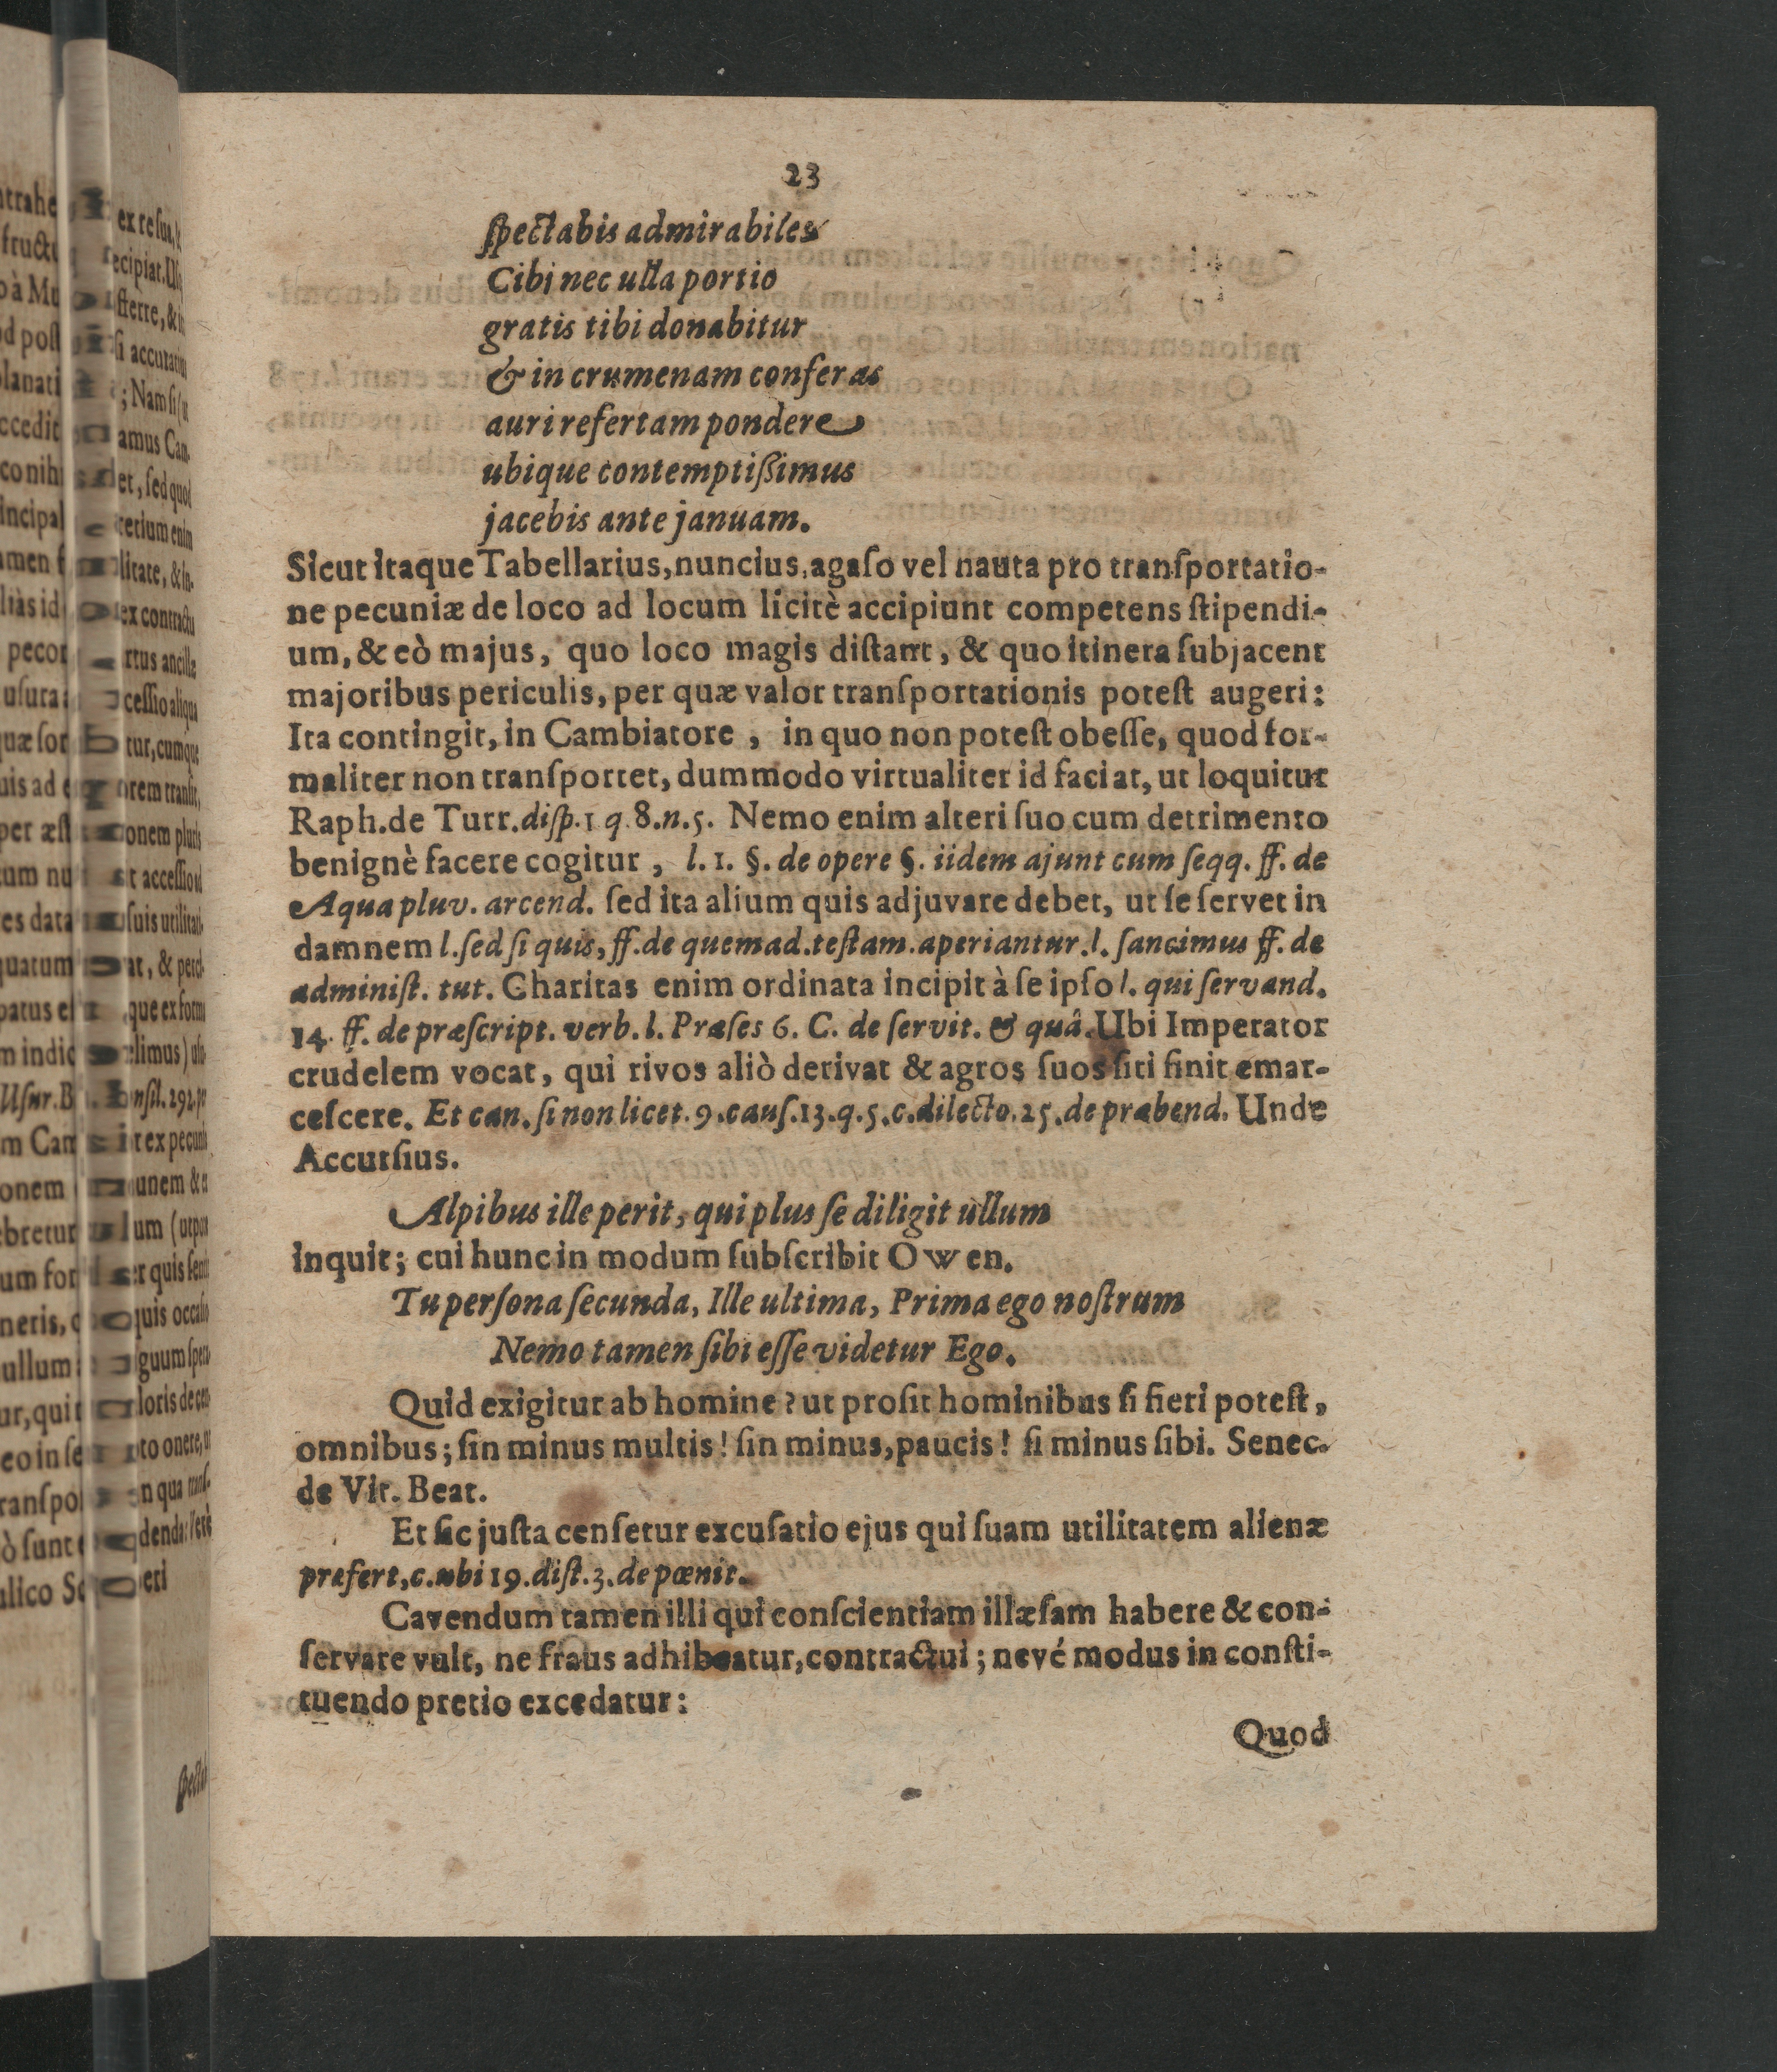 23
ſpectabis admirabiles
Cibi nec ulla portio
gratis tibi donabitur
& in crumenam conferas
auri refertam pondere
ubique contemptiſſimus
jacebis ante januam.
Sicut itaque Tabellarius, nuncius, agaſo vel nauta pro tranſportatio-
ne pecuniæ de loco ad locum licitè accipiunt competens ſtipendi-
um, & eò majus, quo loco magis diſtant, & quo itinera ſubjacent
majoribus periculis, per quæ valor tranſportationis poteſt augeri:
Ita contingit, in Cambiatore, in quo non poteſt obeſſe, quod for-
maliter non tranſportet, dummodo virtualiter id faciat, ut loquitur
Raph. de Turr. diſp. 1 q. 8. n. 5. Nemo enim alteri ſuo cum detrimento
benignè facere cogitur, l. 1. §. de opere §. iidem ajunt cum ſeqq. ff. de
Aqua pluv. arcend. ſed ita alium quis adjuvare debet, ut ſe ſervet in
damnem l. ſed ſi quis, ff. de quemad. teſtam. aperiantur. l. ſancimus ff. de
adminiſt. tut. Charitas enim ordinata incipit à ſe ipſo l. qui ſervand.
14. ff. de præſcript. verb. l. Præſes 6. C. de ſervit. & quâ. Ubi Imperator
crudelem vocat, qui rivos aliò derivat & agros ſuos ſiti ſinit emar-
ceſcere. Et can. ſi non licet. 9. cauſ. 13. q. 5. c. dilecto. 25. de præbend. Unde
Accurſius.
Alpibus ille perit, qui plus ſe diligit ullum
inquit; cui hunc in modum ſubſcribit Owen.
Tu perſona ſecunda, Ille ultima, Prima ego noſtrum
Nemo tamen ſibi eſſe videtur Ego.
Quid exigitur ab homine? ut proſit hominibus ſi fieri poteſt,
omnibus; ſin minus multis! ſin minus, paucis! ſi minus ſibi. Senec.
de Vit. Beat.
Et ſic juſta cenſetur excuſatio ejus qui ſuam utilitatem alienæ
præfert, c. ubi 19. diſt. 3. de pœnit.
Cavendum tamen illi qui conſcientiam illæſam habere & con-
ſervare vult, ne fraus adhibeatur, contractui; nevé modus in conſti-
tuendo pretio excedatur:
Quod